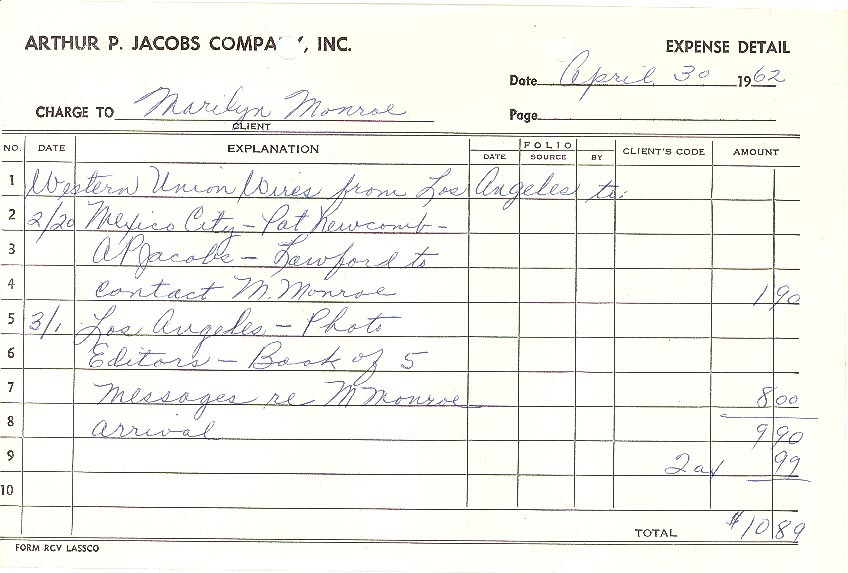 ARTHUR P. JACOBS COMPA Y, INC.
EXPENSE DETAIL
Date April 30 1962
CHARGE TO Marilyn Monroe
CLIENT
Page
NO. DATE EXPLANATION FOLIO DATE SOURCE BY CLIENT'S CODE AMOUNT
1 Western Union Wires from Los Angeles to:
2 2/20 Mexico City - Pat Newcomb -
3 APJacobs - Lawford to
4 contact M. Monroe 1 90
5 3/1 Los Angeles - Photo
6 Editors - Book of 5
7 messages re M Monroe 8 00
8 arrival 9 90
9 Tax 99
10
TOTAL $10 89
FORM RCV LASSCO